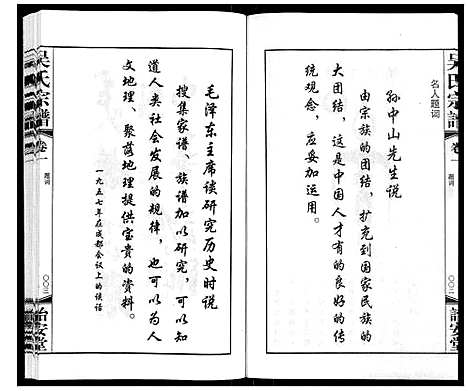 吴氏宗谱
卷一
题词
〇〇二
诒安堂
名人题词
孙中山先生说
由宗族的团结，扩充到国家民族的
大团结，这是中国人才有的良好的传
统观念，应妥加运用。
毛泽东主席谈研究历史时说
搜集家谱、族谱加以研究，可以知
道人类社会发展的规律，也可以为人
文地理、聚落地理提供宝贵的资料。
一九五七年在成都会议上的谈话
吴氏宗谱
卷一
题词
〇〇三
诒安堂